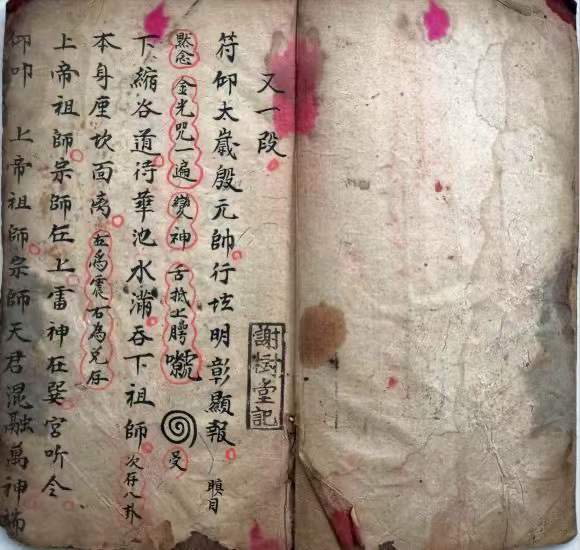 又一段
謝樹堂記
符仰太歲殷元帥行坛明彰顯報 瞑目
黙念 金光咒一遍 變神 舌抵上腭 受
下縮谷道待華池水滿吞下祖師 次存八卦
本身座坎面离 左為震右為兌存
上帝祖師宗師在上雷神在巽宮听令
仰叩 上帝祖師宗師天君混融萬神